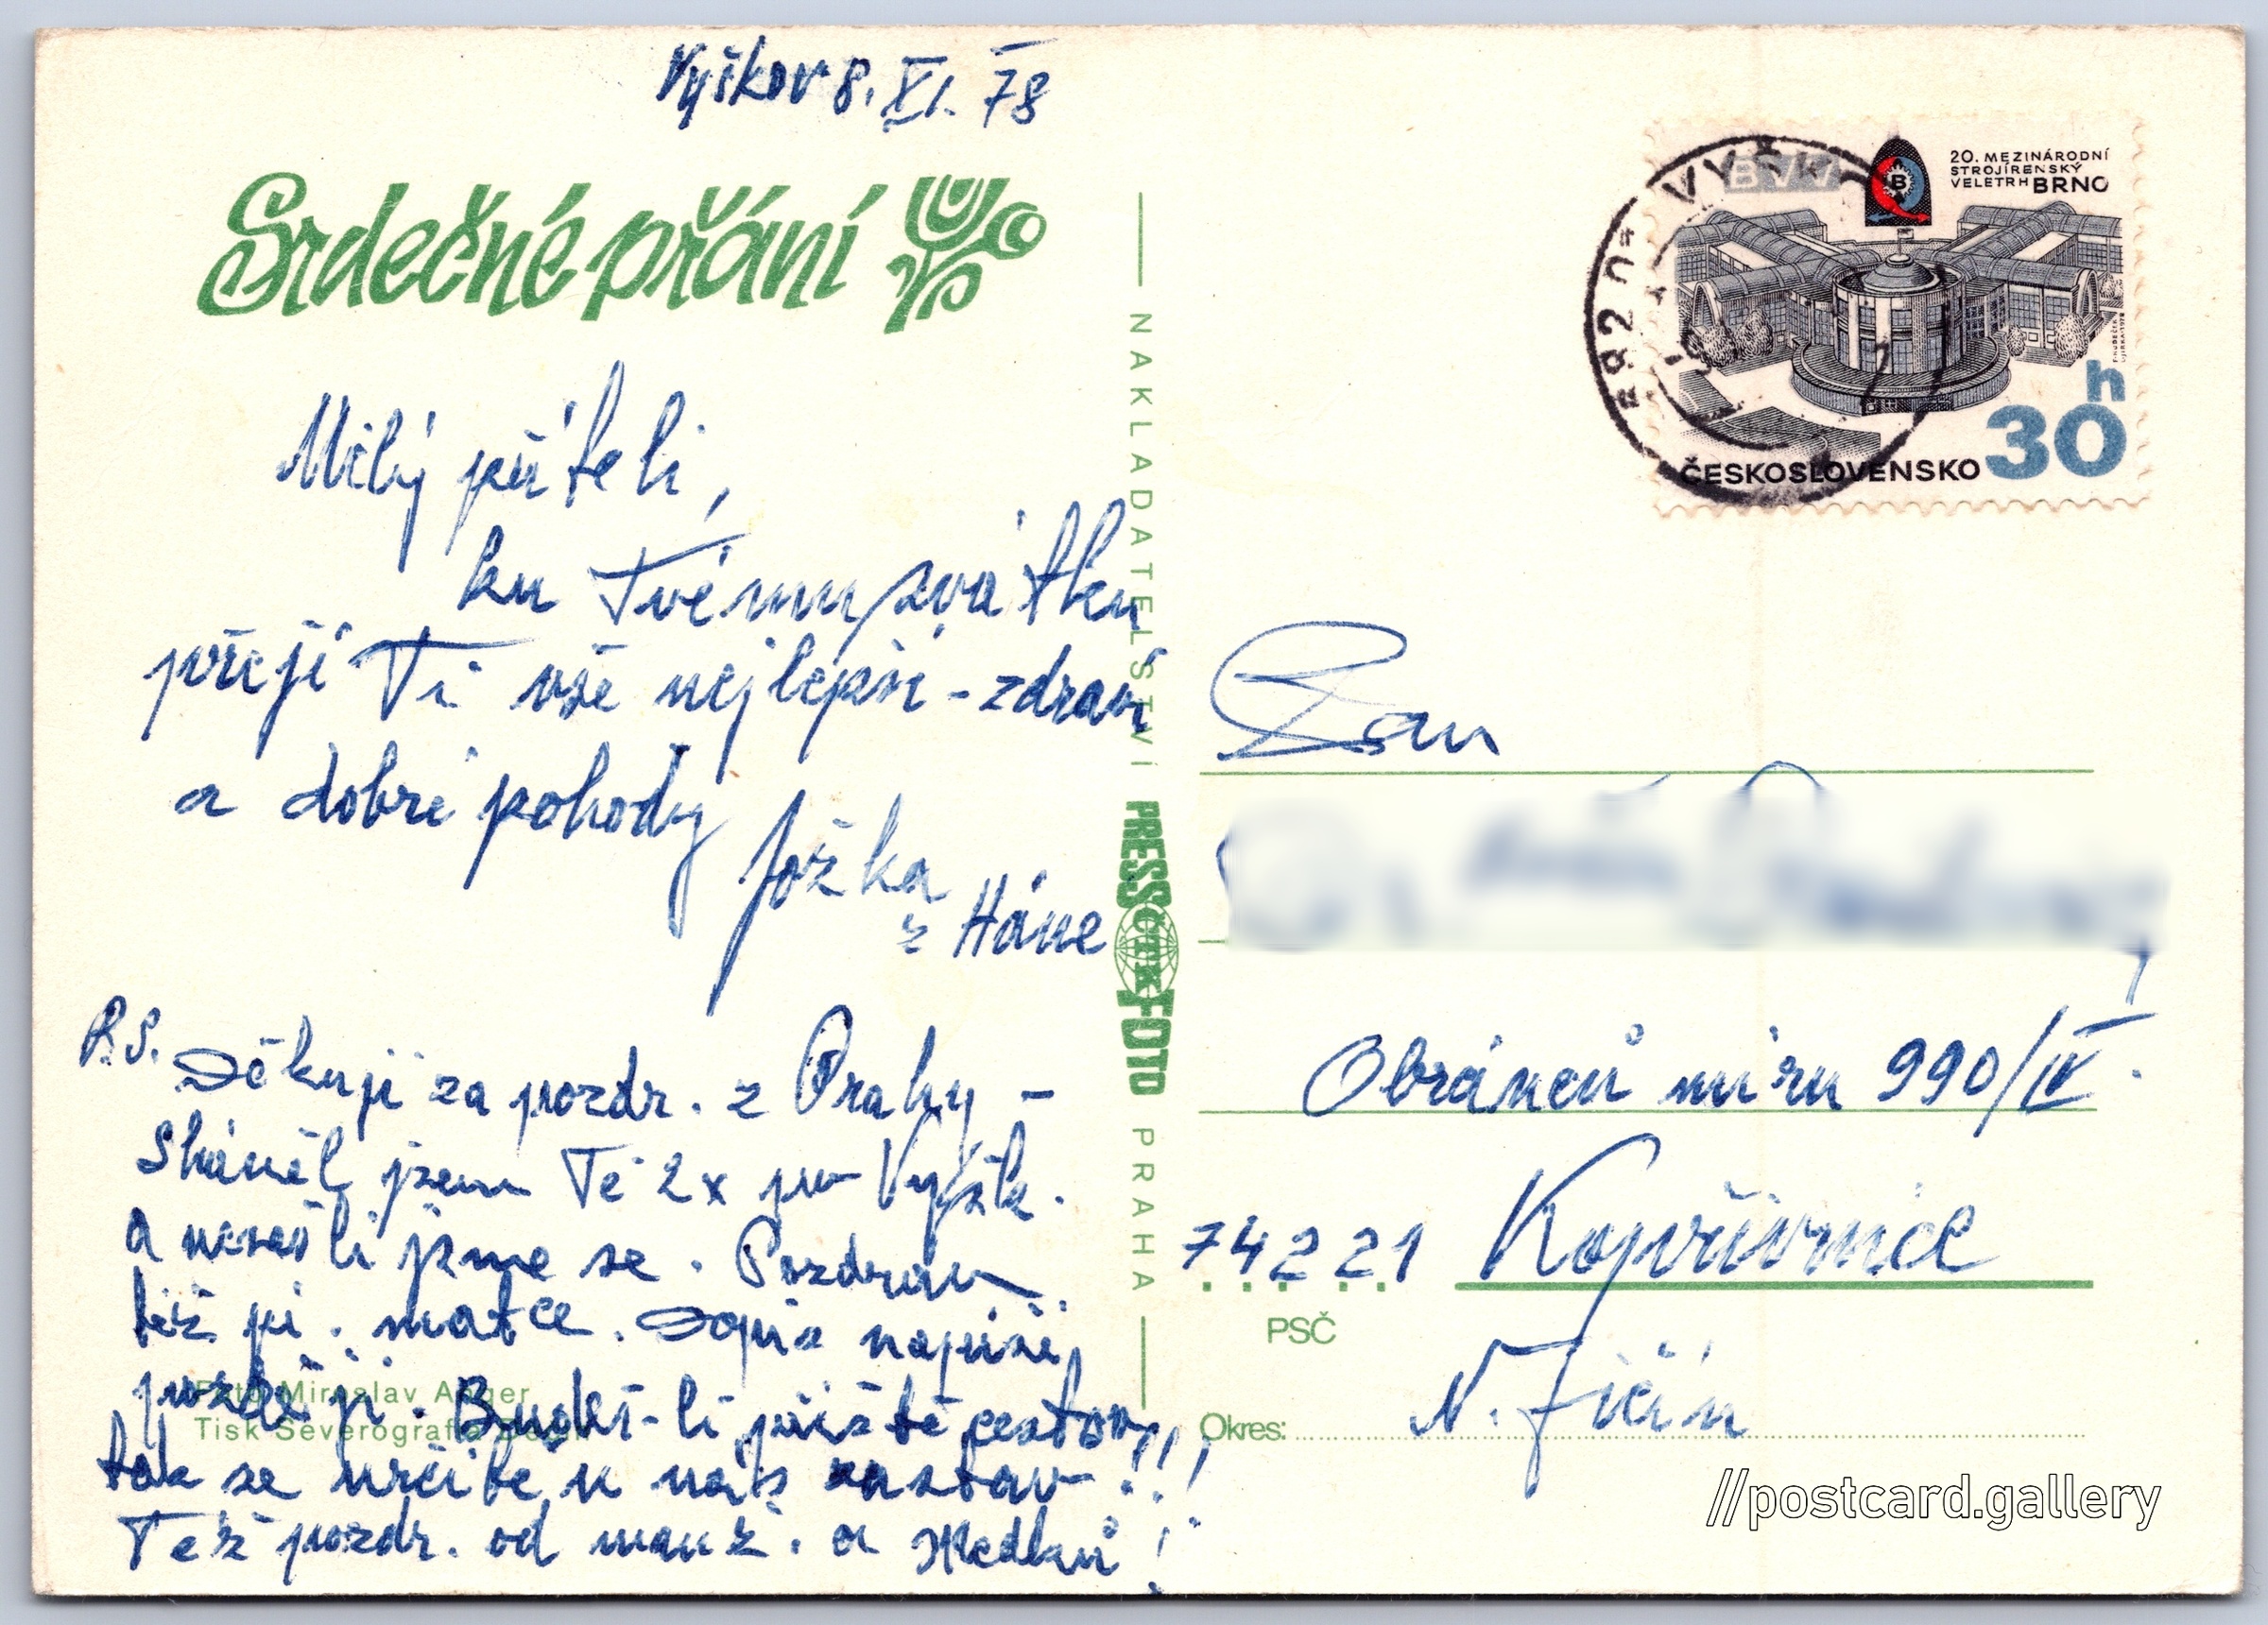 Vyškov 8. XI. 78
Srdečné přání
Milý příteli,
ku Tvému svátku
přeji Ti vše nejlepší - zdraví
a dobré pohody
Jožka
z Hané
P.S. Děkuji za pozdr. z Prahy -
Sháněl jsem Tě 2x po Vyšk.
a nesešli jsme se. Pozdrav
též pí. matce. Dopis napíši
později. Budeš-li příště cestov
tak se určitě u nás zastav!!!
Též pozdr. od manž. a Hedbu!
Foto Miroslav Anger
Tisk Severografia Děčín
NAKLADATELSTVÍ PRESSFOTO PRAHA
ČTK
682 01 VYŠKOV 1
BVV
B
20. MEZINÁRODNÍ
STROJÍRENSKÝ
VELETRH BRNO
30h
ČESKOSLOVENSKO
Pan
Obránců míru 990/IV.
74221 Kopřivnice
PSČ
N. Jičín
Okres:
//postcard.gallery